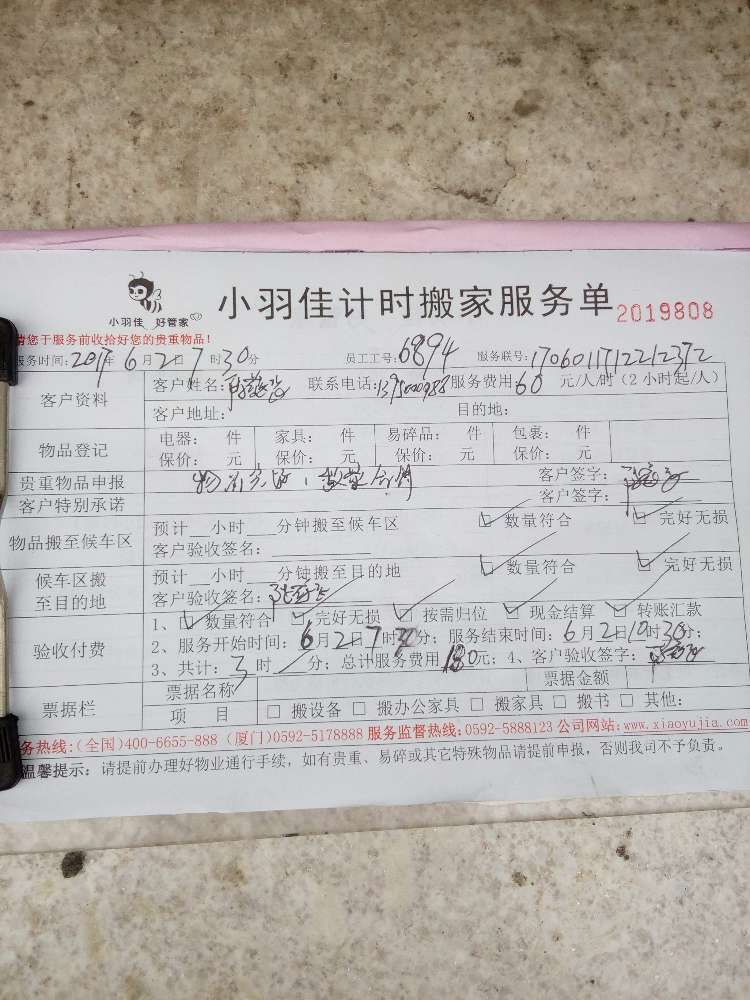 小羽佳 好管家
小羽佳计时搬家服务单 2019808
请您于服务前收拾好您的贵重物品！
服务时间：2017年6月2日7时30分 员工工号：6894 服务联号：1706011712212372
客户资料 客户姓名： 联系电话： 服务费用：60 元/人/时（2小时起/人）
客户地址： 目的地：
物品登记 电器： 件 家具： 件 易碎品： 件 包裹： 件
保价： 元 保价： 元 保价： 元 保价： 元
贵重物品申报 客户签字：
客户特别承诺 客户签字：
物品搬至候车区 预计__小时__分钟搬至候车区 ☑ 数量符合 ☑ 完好无损
客户验收签名：
候车区搬至目的地 预计__小时__分钟搬至目的地 ☑ 数量符合 ☑ 完好无损
客户验收签名：
验收付费 1、☑ 数量符合 ☑ 完好无损 ☑ 按需归位 ☑ 现金结算 ☑ 转账汇款
2、服务开始时间：6月2日7时30分；服务结束时间：6月2日10时30分；
3、共计：3时／分；总计服务费用180元；4、客户验收签字：
票据栏 票据名称 票据金额
项 目 □ 搬设备 □ 搬办公家具 □ 搬家具 □ 搬书 □ 其他：
务热线：(全国)400-6655-888 (厦门)0592-5178888 服务监督热线：0592-5888123 公司网站：www.xiaoyujia.com
温馨提示：请提前办理好物业通行手续，如有贵重、易碎或其它特殊物品请提前申报，否则我司不予负责。